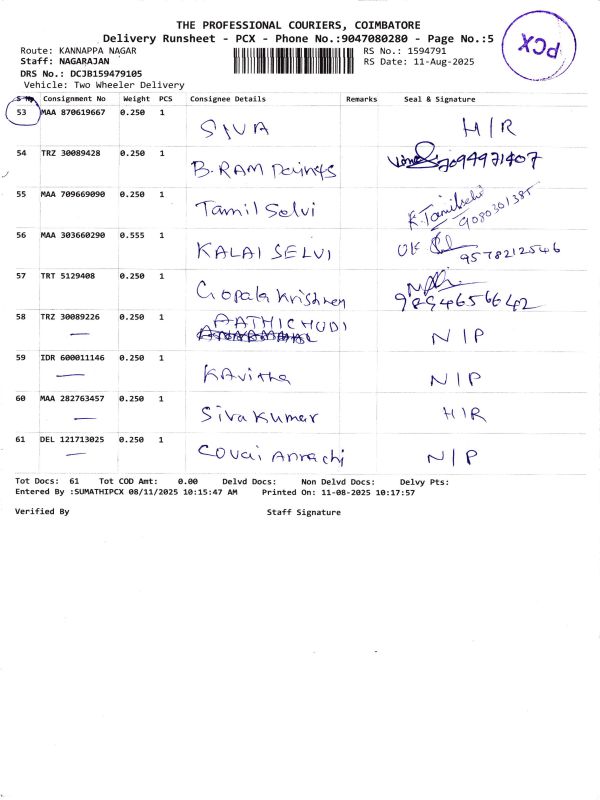 THE PROFESSIONAL COURIERS, COIMBATORE
Delivery Runsheet - PCX - Phone No.:9047080280 - Page No.:5
PCX
Route: KANNAPPA NAGAR RS No.: 1594791
Staff: NAGARAJAN RS Date: 11-Aug-2025
DRS No.: DCJB159479105
Vehicle: Two Wheeler Delivery
S No Consignment No Weight PCS Consignee Details Remarks Seal & Signature
53 MAA 870619667 0.250 1 SIVA H/R
54 TRZ 30089428 0.250 1 B.RAM 7094971407
55 MAA 709669090 0.250 1 Tamil Selvi K.Tamilselvi 9080301385
56 MAA 303660290 0.555 1 KALAI SELVI 9578212546
57 TRT 5129408 0.250 1 Gopala Krishnan 9894656642
58 TRZ 30089226 0.250 1 AATHICHUDI N/P
59 IDR 600011146 0.250 1 KAvitha N/P
60 MAA 282763457 0.250 1 Siva Kumar H/R
61 DEL 121713025 0.250 1 COVAI N/P
Tot Docs: 61 Tot COD Amt: 0.00 Delvd Docs: Non Delvd Docs: Delvy Pts:
Entered By :SUMATHIPCX 08/11/2025 10:15:47 AM Printed On: 11-08-2025 10:17:57
Verified By Staff Signature